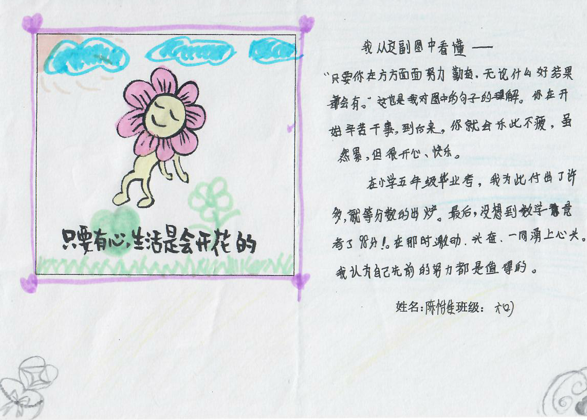 只要有心,生活是会开花的
我从这副图中看懂——
“只要你在方方面面努力勤奋,无论什么好结果
都会有。”这也是我对图中的句子的理解。你在开
始辛苦干事,到后来,你就会乐此不疲,虽
然累,但很开心、快乐。
在小学五年级毕业考,我为此付出了许
多,就等分数的出炉。最后,没想到数学竟
考了98分!在那时激动、兴奋、一同涌上心头。
我认为自己先前的努力都是值得的。
姓名:陈怡佳班级:六(4)